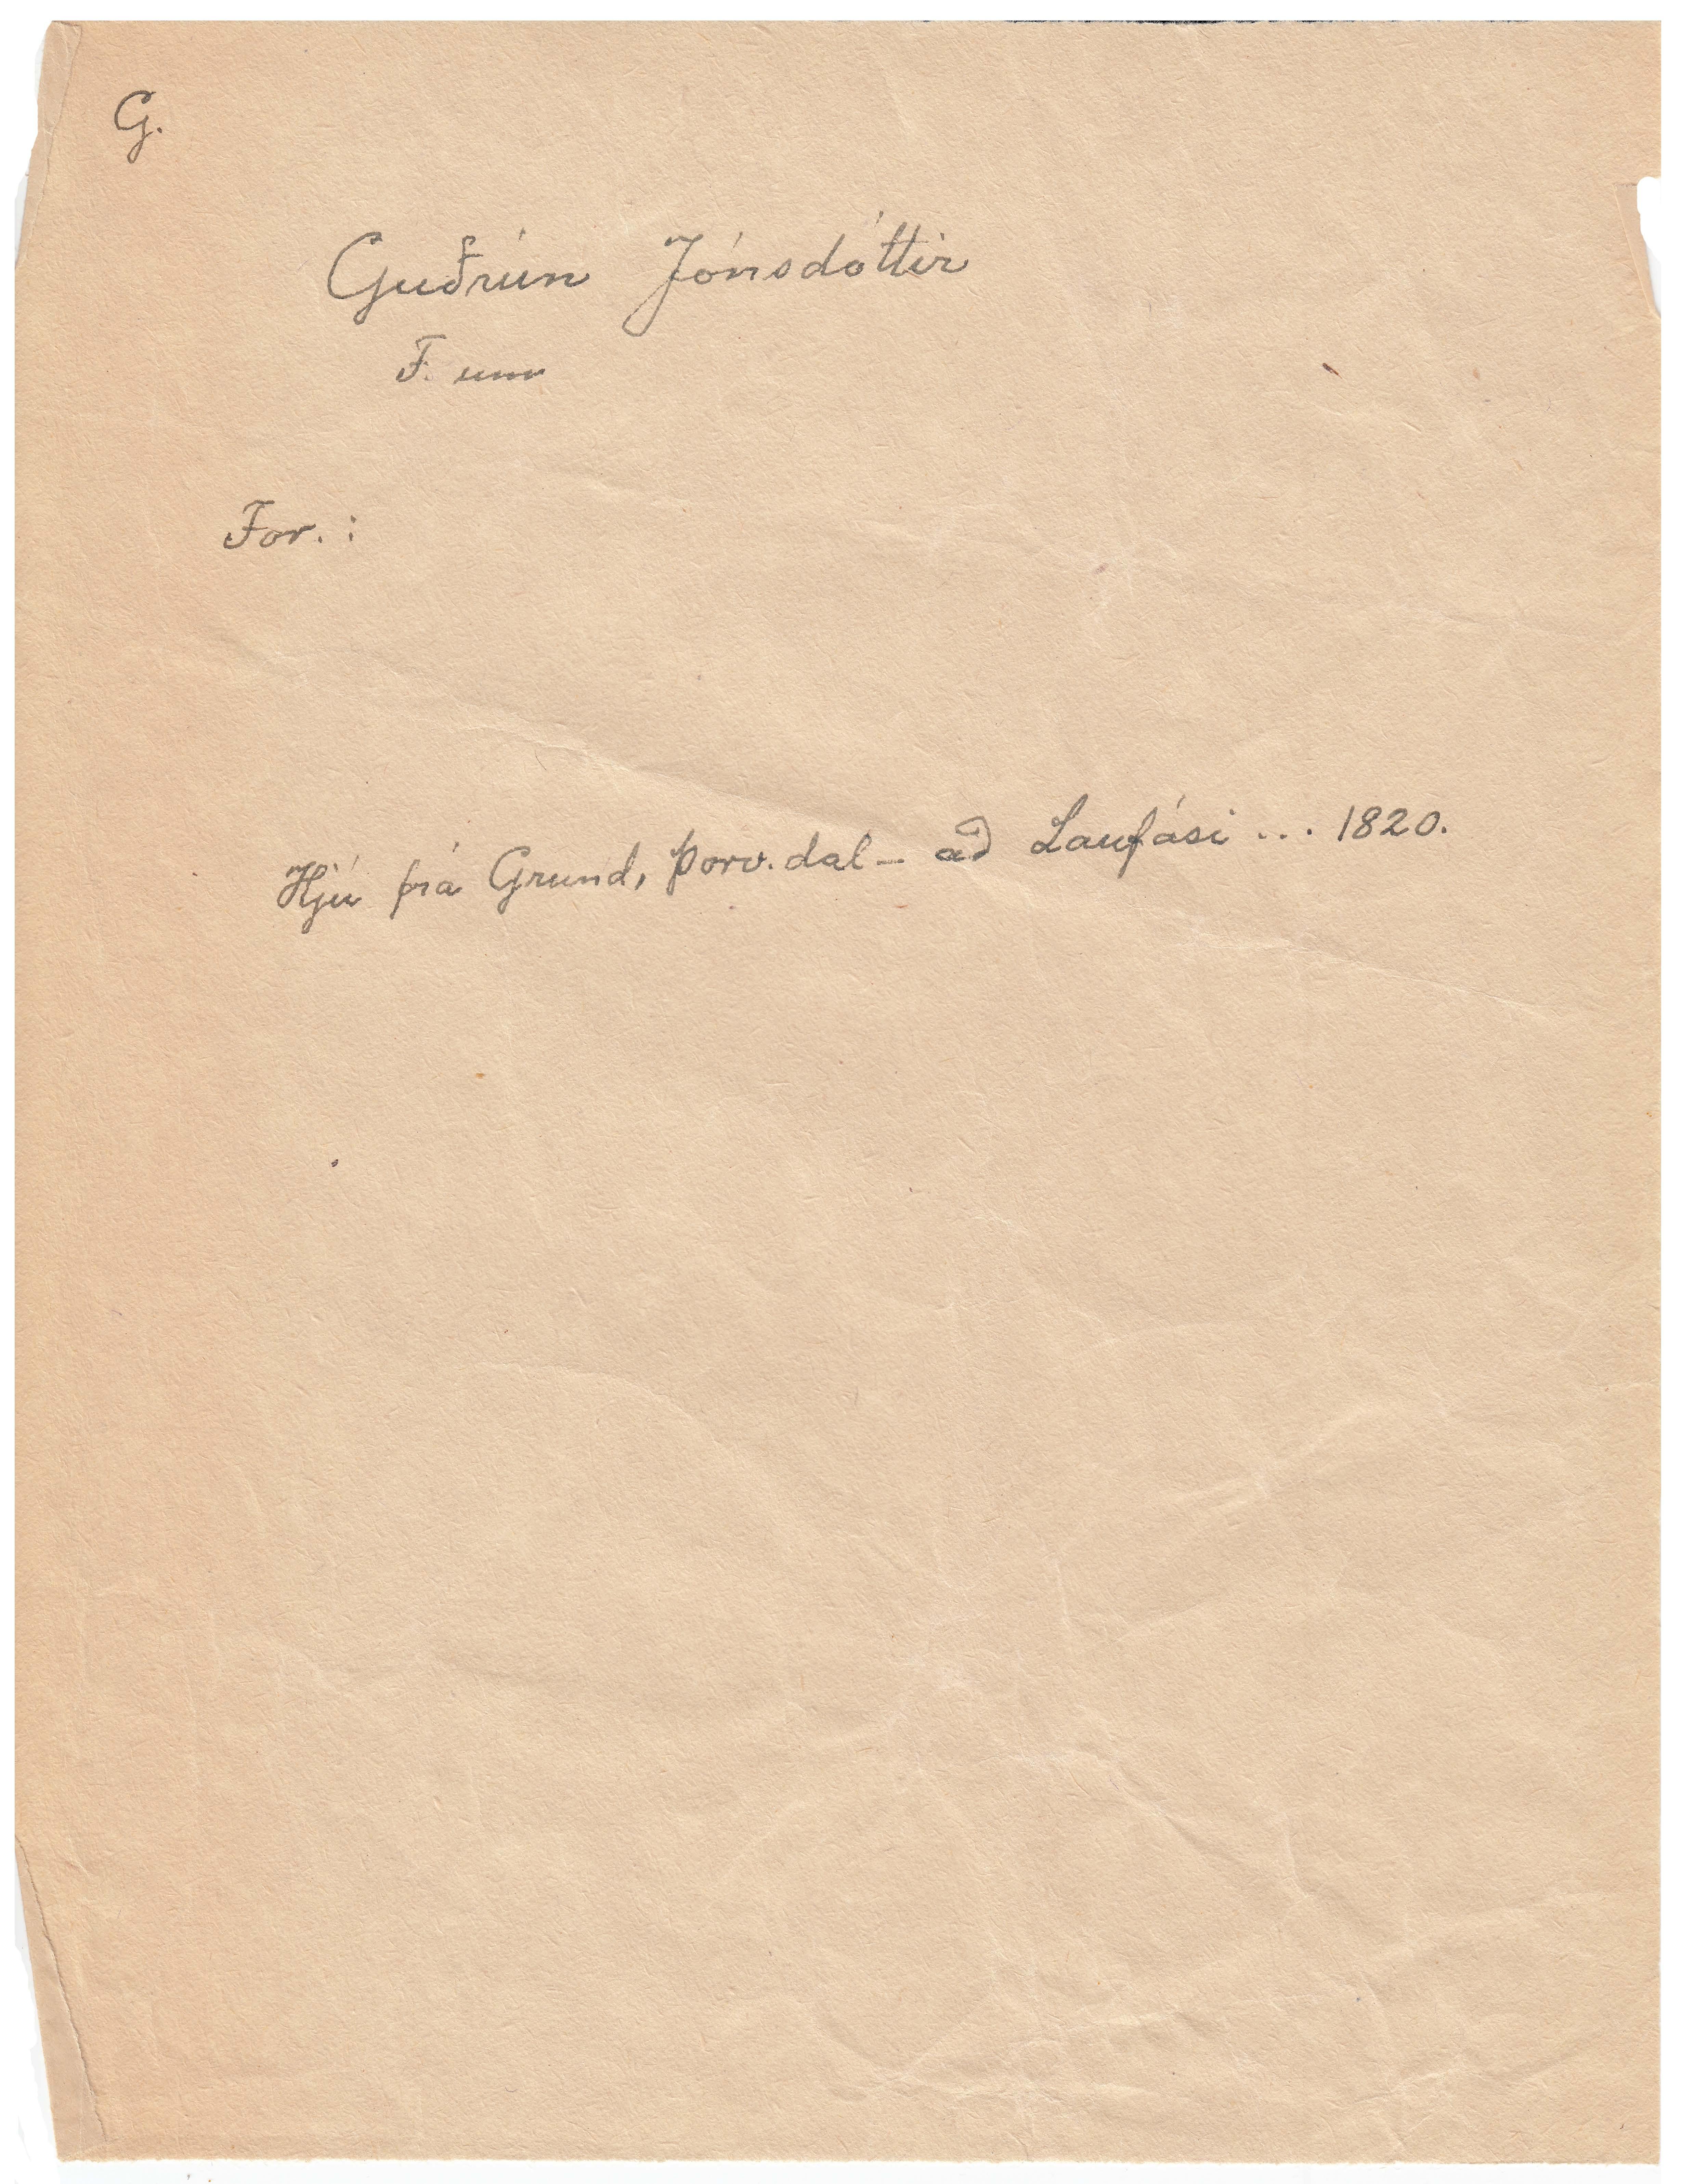 G.
Guðrún Jónsdóttir
F. um
For. :
Hjú frá Grund, Þorv.dal - að Laufási ... 1820.